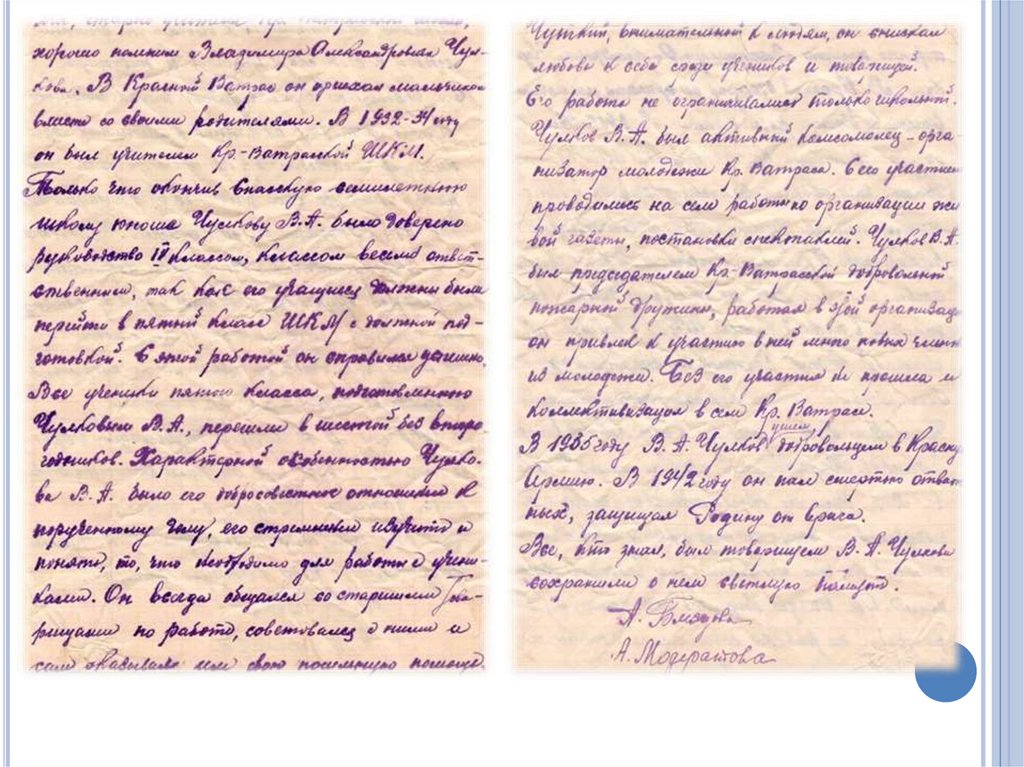 хорошо помним Владимира Александровича Чул-
кова. В Красный Ватрас он приехал мальчиком
вместе со своими родителями. В 1932-34 году
он был учителем Кр.-Ватрасской ШКМ.
Только что окончив Спасскую семилетнюю
школу юноше Чулкову В.А. было доверено
руководство IV классом, классом весьма ответ-
ственным, так как его учащиеся должны были
перейти в пятый класс ШКМ с должной под-
готовкой. С этой работой он справился успешно.
Все ученики пятого класса, подготовленного
Чулковым В.А., перешли в шестой без второ-
годников. Характерной особенностью Чулко-
ва В.А. было его добросовестное отношение к
порученному делу, его стремление изучить и
понять, то, что необходимо для работы с учени-
ками. Он всегда общался со старшими това-
рищами по работе, советовался с ними и
сам оказывал им свою посильную помощь.
Чуткий, внимательный к людям, он снискал
любовь к себе среди учеников и товарищей.
Его работа не ограничивалась только школьной.
Чулков В.А. был активный комсомолец - орга-
низатор молодежи Кр. Ватраса. С его участием
проводилась на селе работа по организации жи
вой газеты, постановки спектаклей. Чулков В.А.
был председателем Кр-Ватрасской добровольной
пожарной дружины, работая в этой организац
он привлек к участию в ней много новых членов
из молодежи. Без его участия не прошла и
коллективизация в селе Кр. Ватрасе.
В 1935 году В. А. Чулков ушел добровольцем в Красную
Армию. В 1942 году он пал смертью отваж
ных, защищая Родину от врага.
Все, кто знал, был товарищем В. А. Чулкова
сохранили о нем светлую память.
А.
А. Модератова